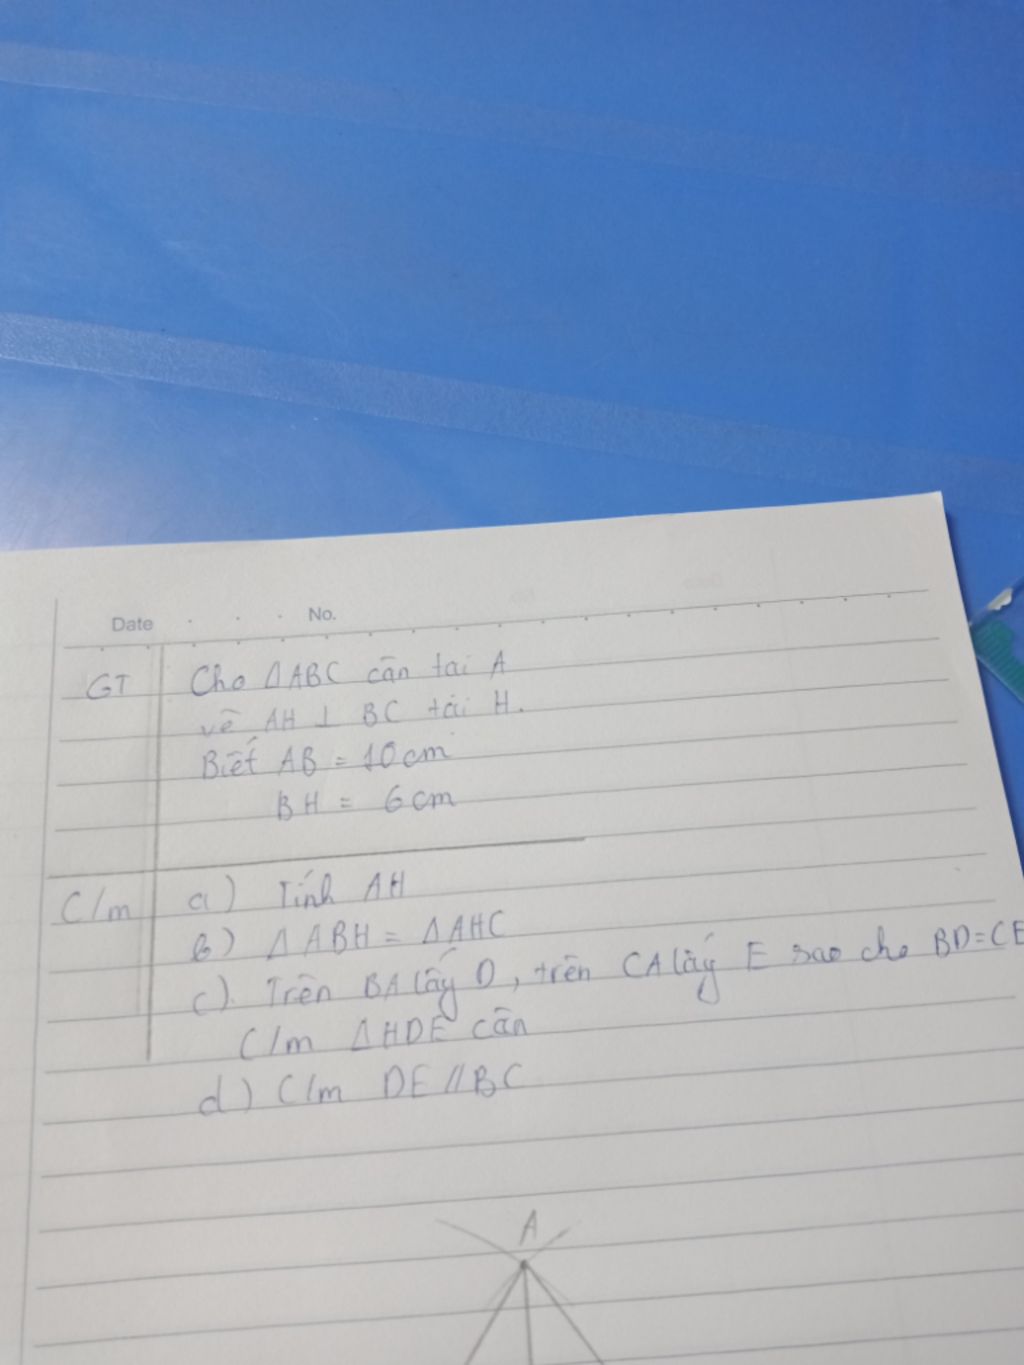 Date No.
GT Cho ΔABC cân tai A
vẽ AH ⊥ BC tại H.
Biết AB = 10cm
BH = 6cm
C/m a) Tính AH
b) ΔABH = ΔAHC
c). Trên BA lấy D, trên CA lấy E sao cho BD=CE
C/m ΔHDE cân
d) C/m DE//BC
A